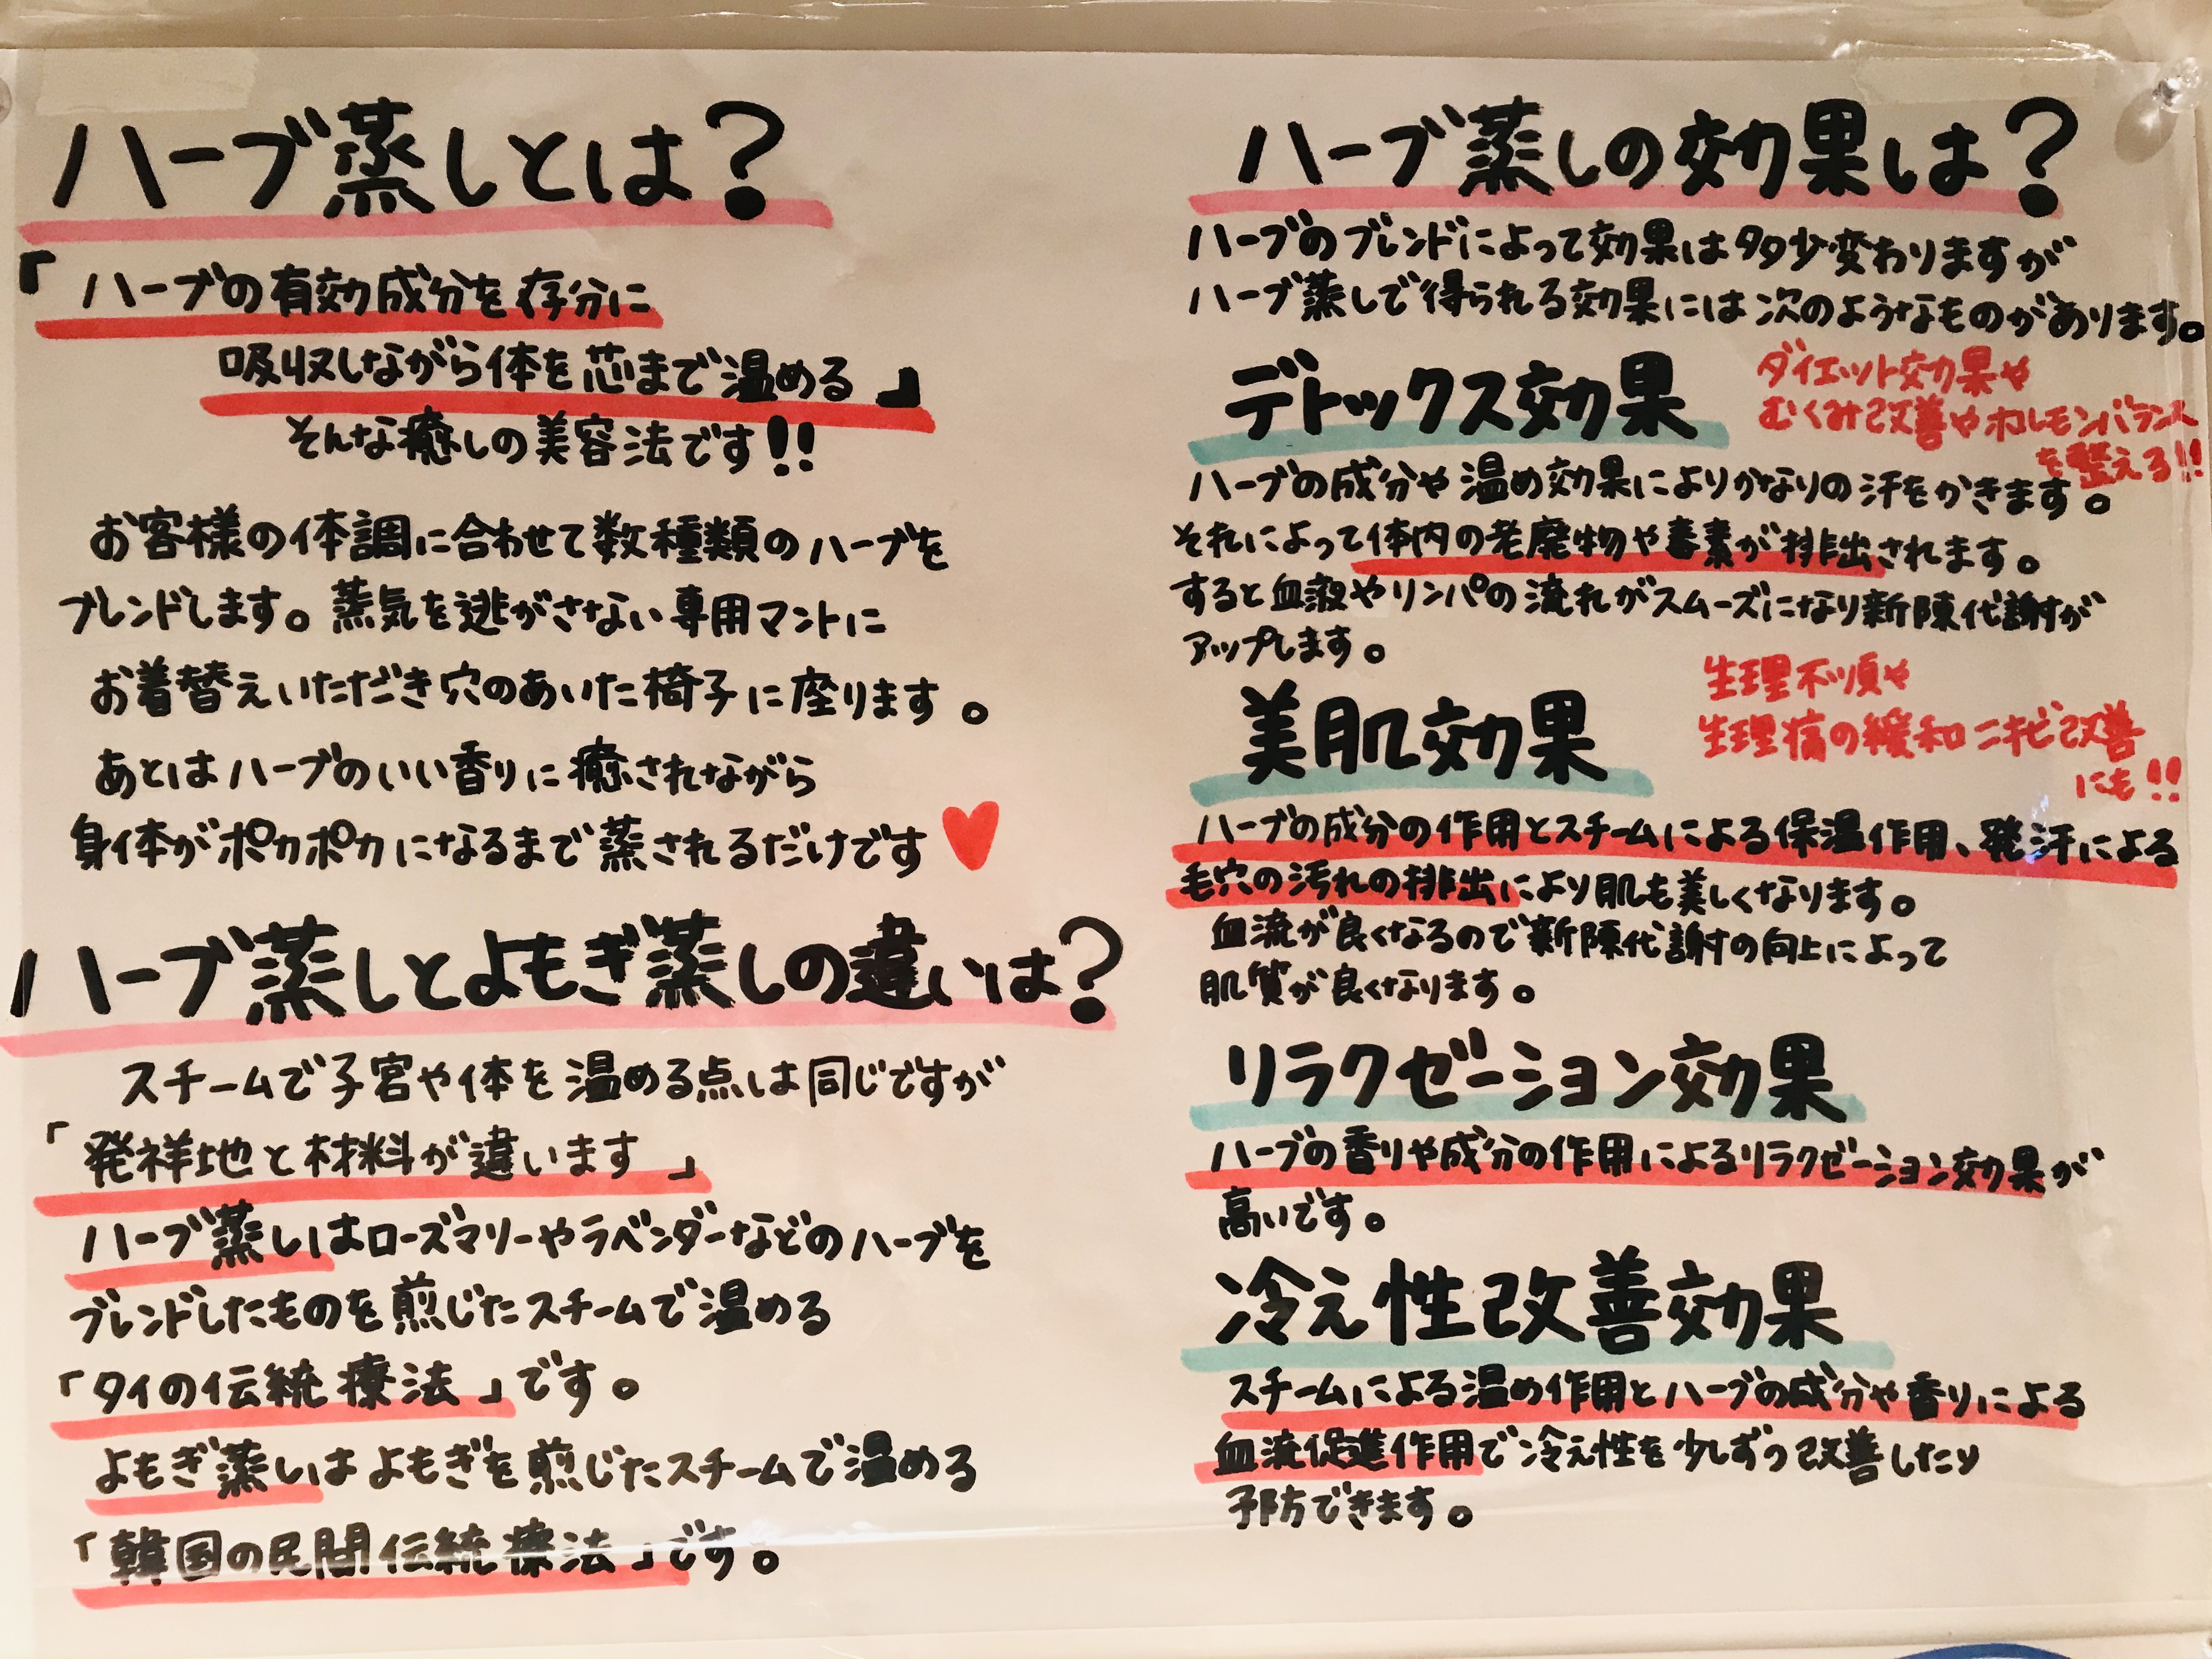 ハーブ蒸しとは?
「ハーブの有効成分を存分に
吸収しながら体を芯まで温める」
そんな癒しの美容法です!!
お客様の体調に合わせて数種類のハーブを
ブレンドします。蒸気を逃がさない専用マントに
お着替えいただき穴のあいた椅子に座ります。
あとはハーブのいい香りに癒されながら
身体がポカポカになるまで蒸されるだけです♥
ハーブ蒸しとよもぎ蒸しの違いは?
スチームで子宮や体を温める点は同じですが
「発祥地と材料が違います」
ハーブ蒸しはローズマリーやラベンダーなどのハーブを
ブレンドしたものを煎じたスチームで温める
「タイの伝統療法」です。
よもぎ蒸しはよもぎを煎じたスチームで温める
「韓国の民間伝統療法」です。
ハーブ蒸しの効果は?
ハーブのブレンドによって効果は多少変わりますが
ハーブ蒸しで得られる効果には次のようなものがあります。
デトックス効果
ダイエット効果や
むくみ改善やホルモンバランス
を整える!!
ハーブの成分や温め効果によりかなりの汗をかきます。
それによって体内の老廃物や毒素が排出されます。
すると血液やリンパの流れがスムーズになり新陳代謝が
アップします。
美肌効果
生理不順や
生理痛の緩和ニキビ改善
にも!!
ハーブの成分の作用とスチームによる保温作用、発汗による
毛穴の汚れの排出により肌も美しくなります。
血流が良くなるので新陳代謝の向上によって
肌質が良くなります。
リラクゼーション効果
ハーブの香りや成分の作用によるリラクゼーション効果が
高いです。
冷え性改善効果
スチームによる温め作用とハーブの成分や香りによる
血流促進作用で冷え性を少しずつ改善したり
予防できます。